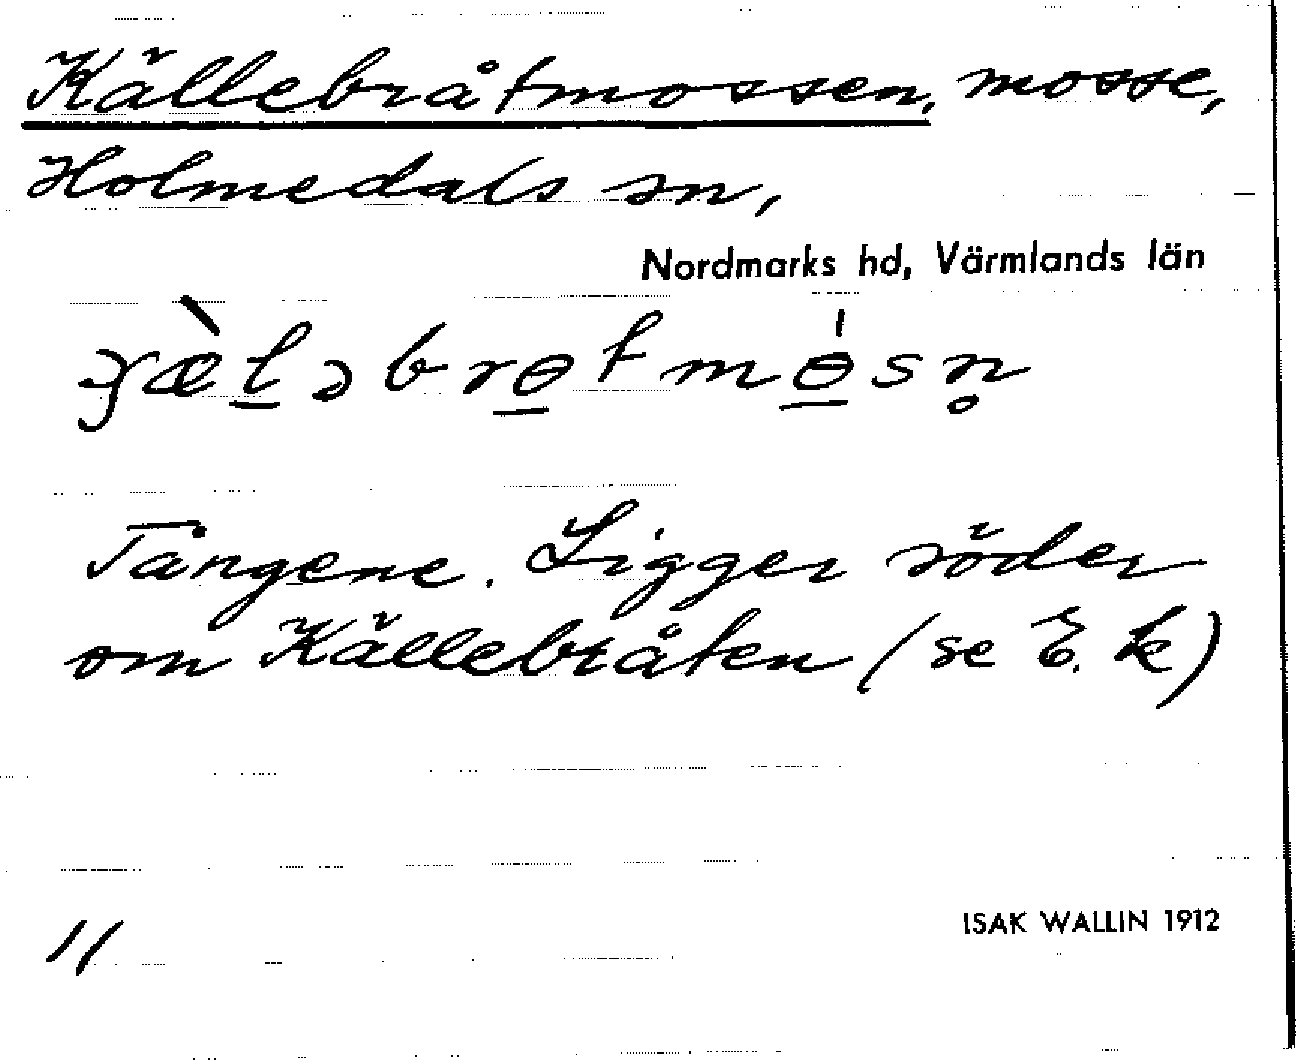 Källebråtmossen, mosse,
Holmedals sn,
Nordmarks hd, Värmlands län
Tångene. Ligger söder
om Källebråten (se E. k)
11
ISAK WALLIN 1912